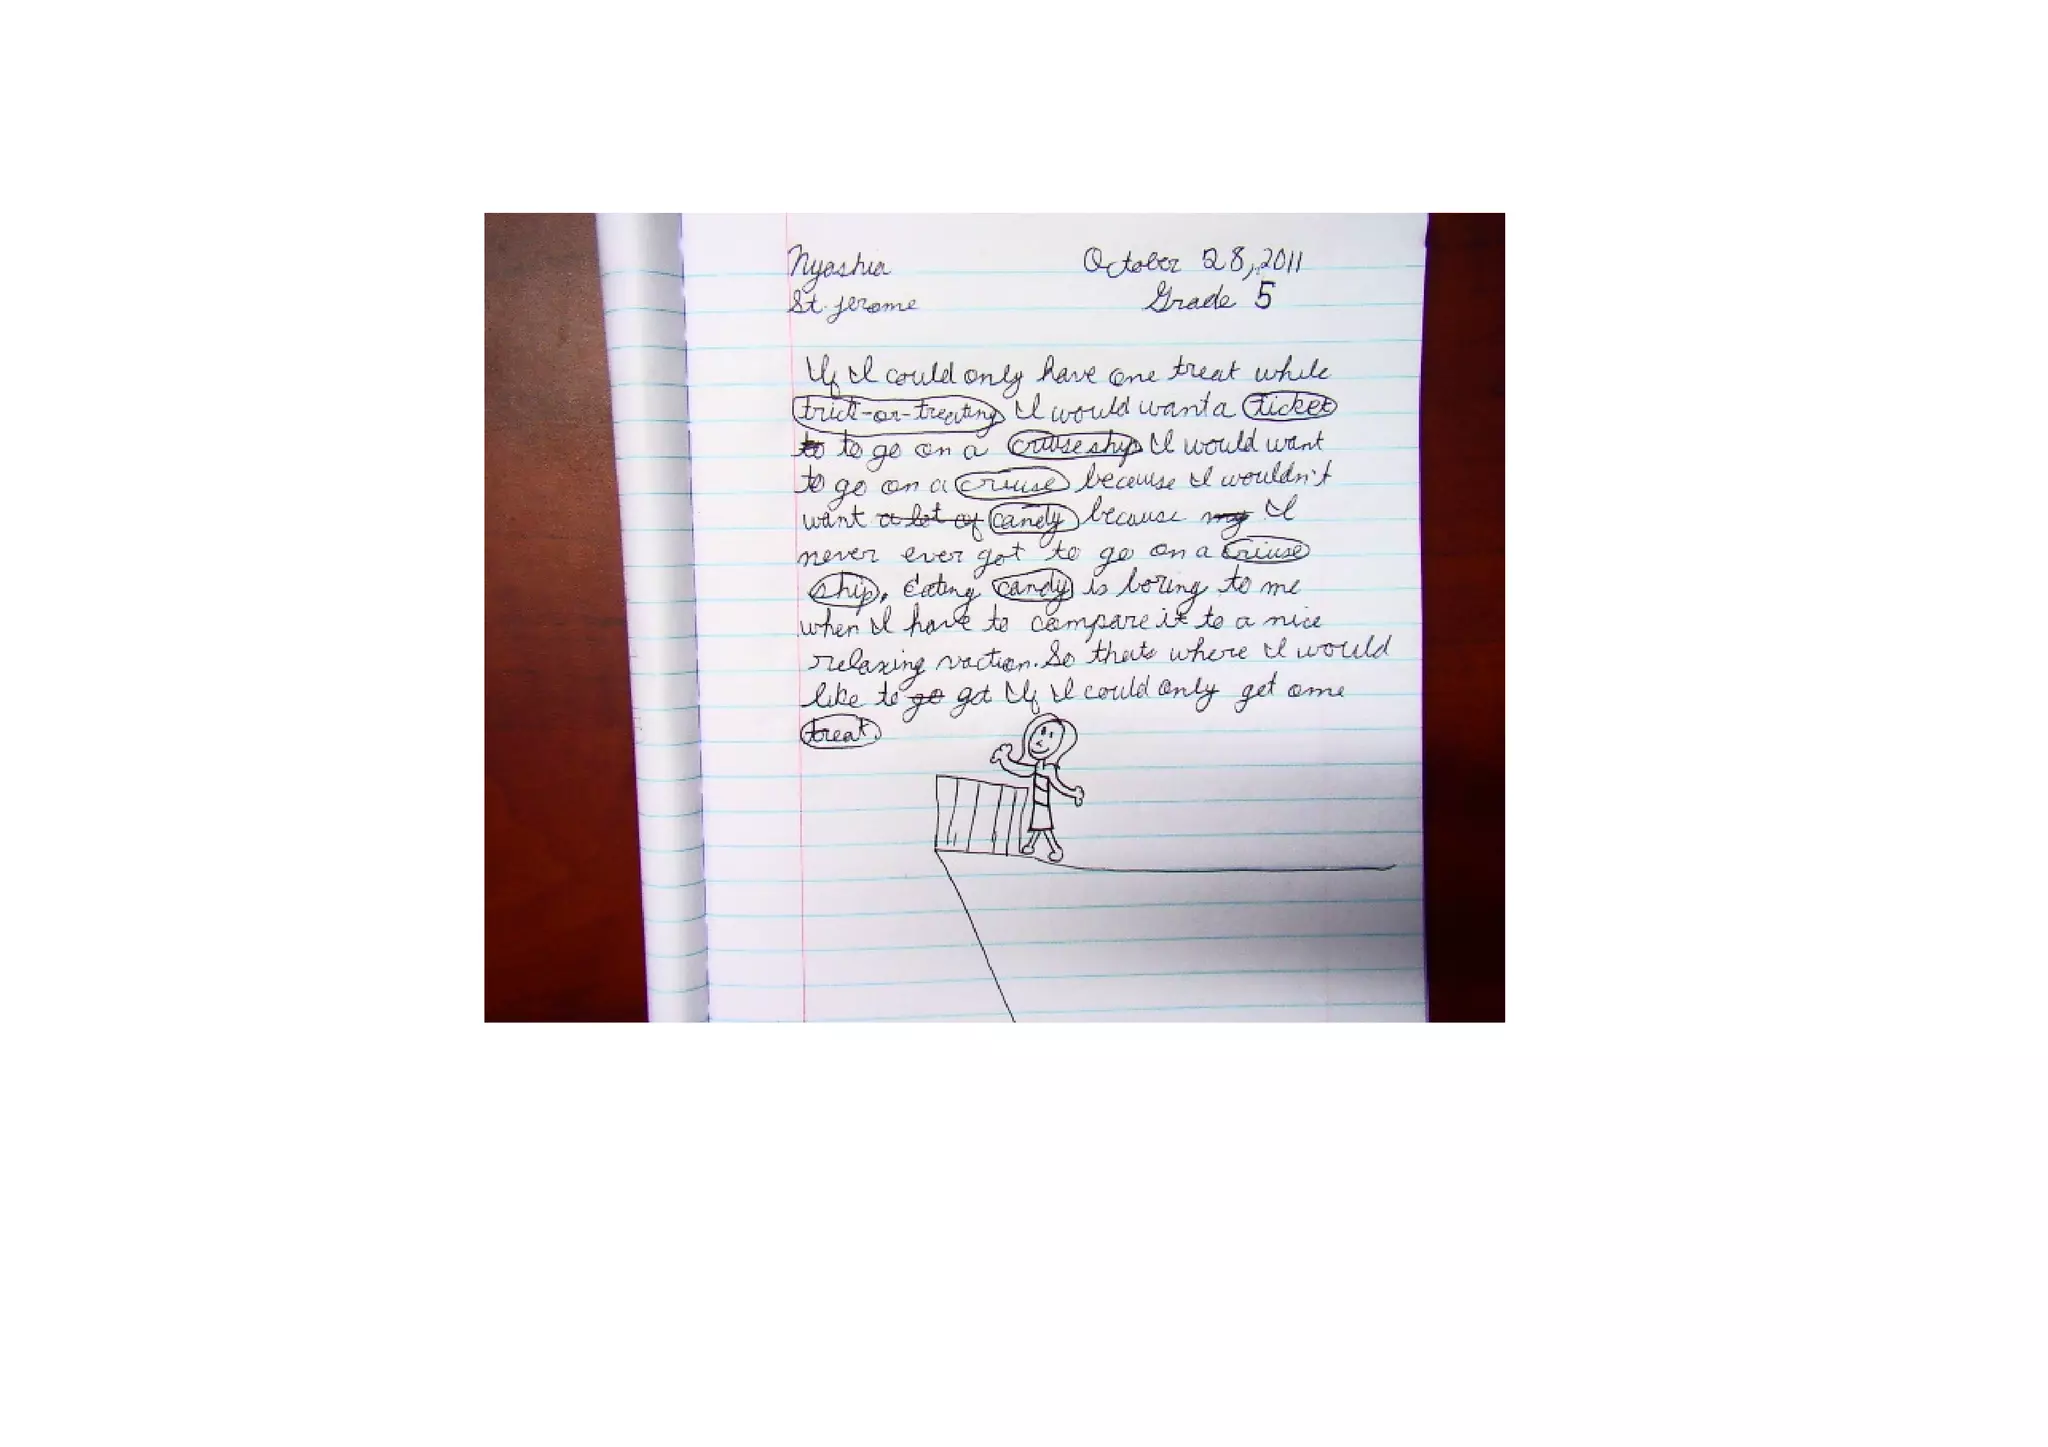 Nyashia October 28, 2011
St. Jerome Grade 5
If I could only have one treat while
trick-or-treating I would want a ticket
to to go on a cruise ship I would want
to go on a criuse because I wouldn't
want a lot of candy because my I
never ever got to go on a criuse
ship. Eating candy is boring to me
when I have to compare it to a nice
relaxing vaction. So thats where I would
like to go got If I could only get ome
treat.